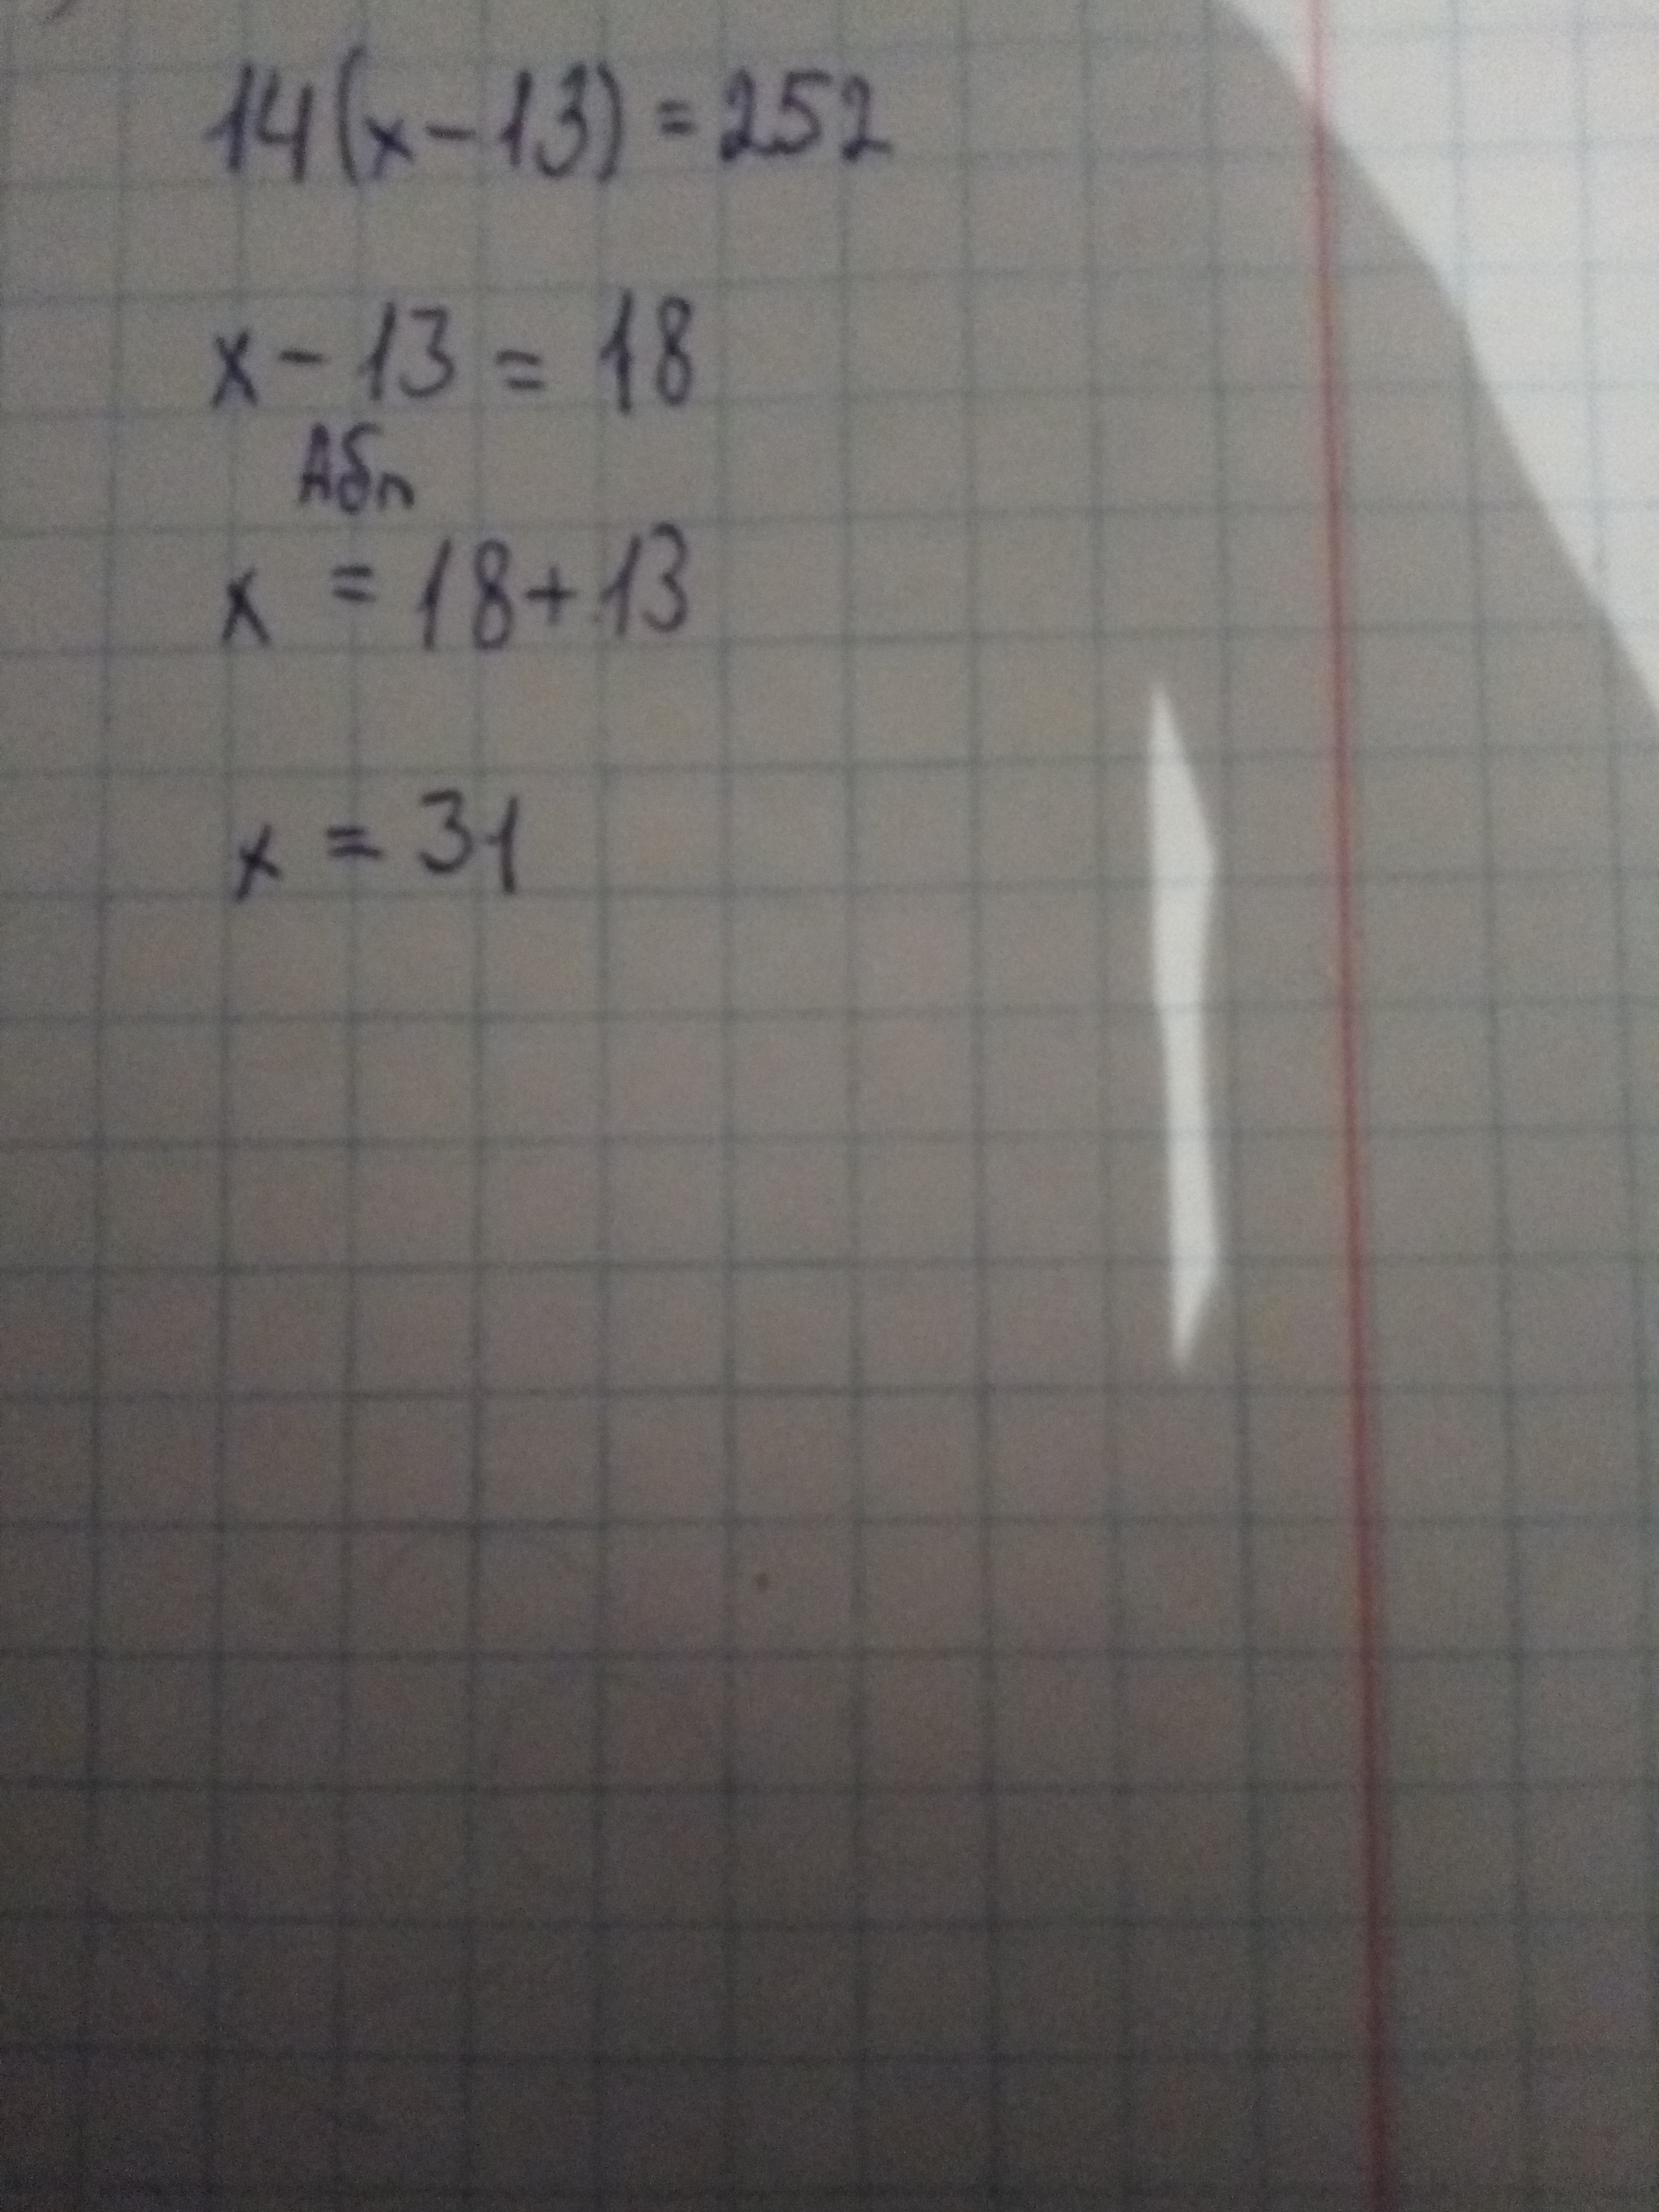 14(x-13)=252
x-13=18
Абп
x=18+13
x=31